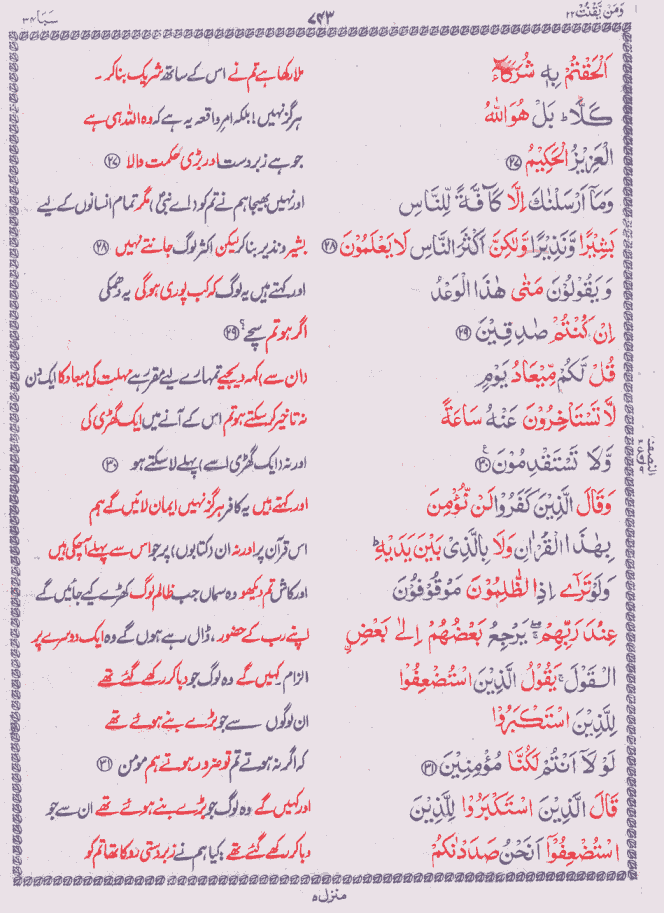 وَمَنْ يَّقْنُتْ ٢٢
٧٤٣
سَبَا ٣٤
اَلْحَقْتُمْ بِهٖ شُرَكَآءَ
ملا رکھا ہے تم نے اس کے ساتھ شریک بنا کر ۔
كَلَّا ؕ بَلْ هُوَ اللّٰهُ
ہرگز نہیں! بلکہ امرِ واقعہ یہ ہے کہ وہ اللہ ہی ہے
الْعَزِيْزُ الْحَكِيْمُ ﴿٢٧﴾
جو ہے زبردست اور بڑی حکمت والا ﴿٢٧﴾
وَمَاۤ اَرْسَلْنٰكَ اِلَّا كَآفَّةً لِّلنَّاسِ
اور نہیں بھیجا ہم نے تم کو (اے نبیؐ) مگر تمام انسانوں کے لیے
بَشِيْرًا وَّنَذِيْرًا وَّلٰكِنَّ اَكْثَرَ النَّاسِ لَا يَعْلَمُوْنَ ﴿٢٨﴾
بشیر و نذیر بنا کر لیکن اکثر لوگ جانتے نہیں ﴿٢٨﴾
وَيَقُوْلُوْنَ مَتٰى هٰذَا الْوَعْدُ
اور کہتے ہیں یہ لوگ کہ کب پوری ہوگی یہ دھمکی
اِنْ كُنْتُمْ صٰدِقِيْنَ ﴿٢٩﴾
اگر ہو تم سچے؟ ﴿٢٩﴾
قُلْ لَّكُمْ مِّيْعَادُ يَوْمٍ
(ان سے) کہہ دیجیے تمہارے لیے مقرر ہے مہلت کی میعاد کا ایک دن
لَّا تَسْتَاْخِرُوْنَ عَنْهُ سَاعَةً
نہ تاخیر کر سکتے ہو تم اس کے آنے میں ایک گھڑی کی
وَّلَا تَسْتَقْدِمُوْنَ ﴿٣٠﴾ ع
اور نہ (ایک گھڑی اسے) پہلے لا سکتے ہو ﴿٣٠﴾
وَقَالَ الَّذِيْنَ كَفَرُوْا لَنْ نُّؤْمِنَ
اور کہتے ہیں یہ کافر ہرگز نہیں ایمان لائیں گے ہم
بِهٰذَا الْقُرْاٰنِ وَلَا بِالَّذِيْ بَيْنَ يَدَيْهِ ؕ
اس قرآن پر اور نہ ان (کتابوں) پر جو اس سے پہلے آچکی ہیں
وَلَوْ تَرٰۤى اِذِ الظّٰلِمُوْنَ مَوْقُوْفُوْنَ
اور کاش تم دیکھو وہ سماں جب ظالم لوگ کھڑے کیے جائیں گے
عِنْدَ رَبِّهِمْ ۖۚ يَرْجِعُ بَعْضُهُمْ اِلٰى بَعْضِ
اپنے رب کے حضور ، ڈال رہے ہوں گے وہ ایک دوسرے پر
الْقَوْلَ ۚ يَقُوْلُ الَّذِيْنَ اسْتُضْعِفُوْا
الزام ۔ کہیں گے وہ لوگ جو دبا کر رکھے گئے تھے
لِلَّذِيْنَ اسْتَكْبَرُوْا
ان لوگوں سے جو بڑے بنے ہوئے تھے
لَوْ لَاۤ اَنْتُمْ لَكُنَّا مُؤْمِنِيْنَ ﴿٣١﴾
کہ اگر نہ ہوتے تم تو ضرور ہوتے ہم مومن ﴿٣١﴾
قَالَ الَّذِيْنَ اسْتَكْبَرُوْا لِلَّذِيْنَ
اور کہیں گے وہ لوگ جو بڑے بنے ہوئے تھے ان سے جو
اسْتُضْعِفُوْۤا اَنَحْنُ صَدَدْنٰكُمْ
دبا کر رکھے گئے تھے : کیا ہم نے زبردستی روکا تھا تم کو
منزل ۵